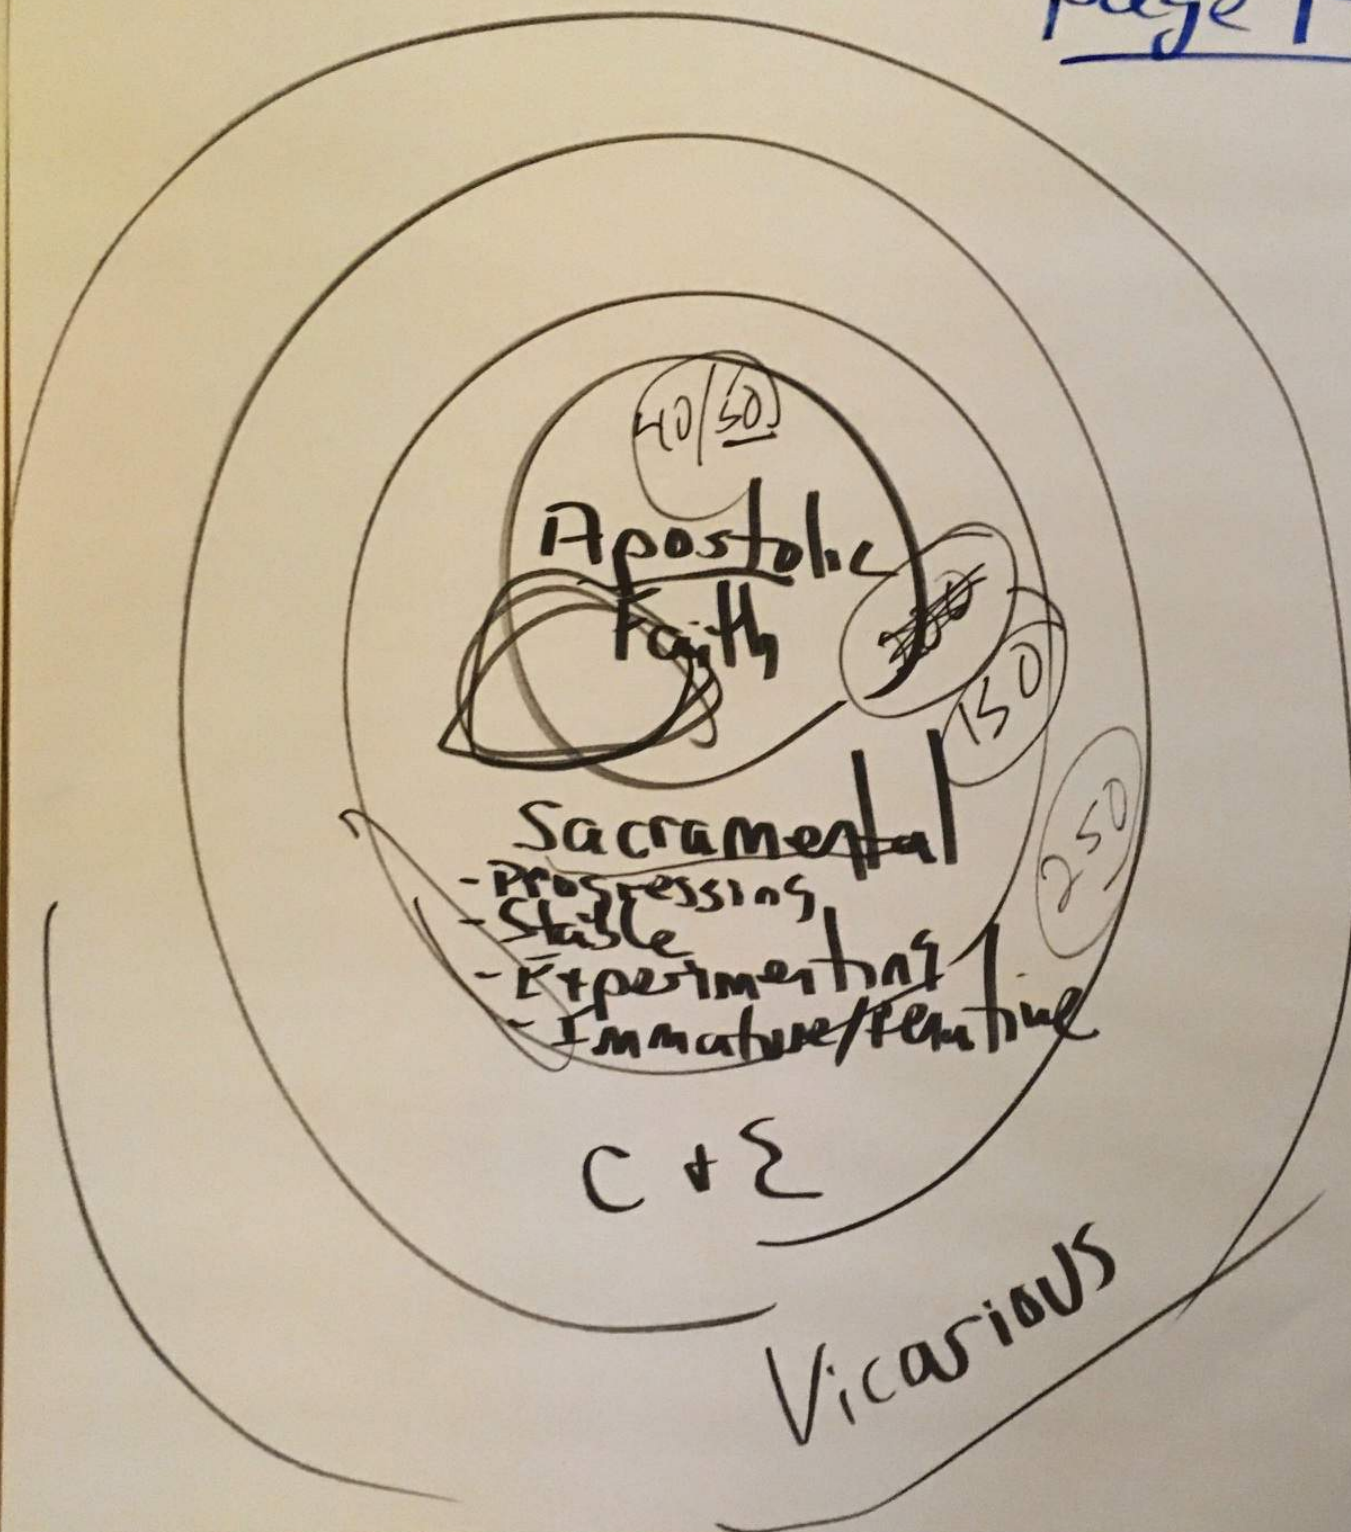 page 1
40/50
Apostolic
Faith
150
250
Sacramental
- Progressing
- Stable
- Experimenting
- Immature/tentative
C + E
Vicarious